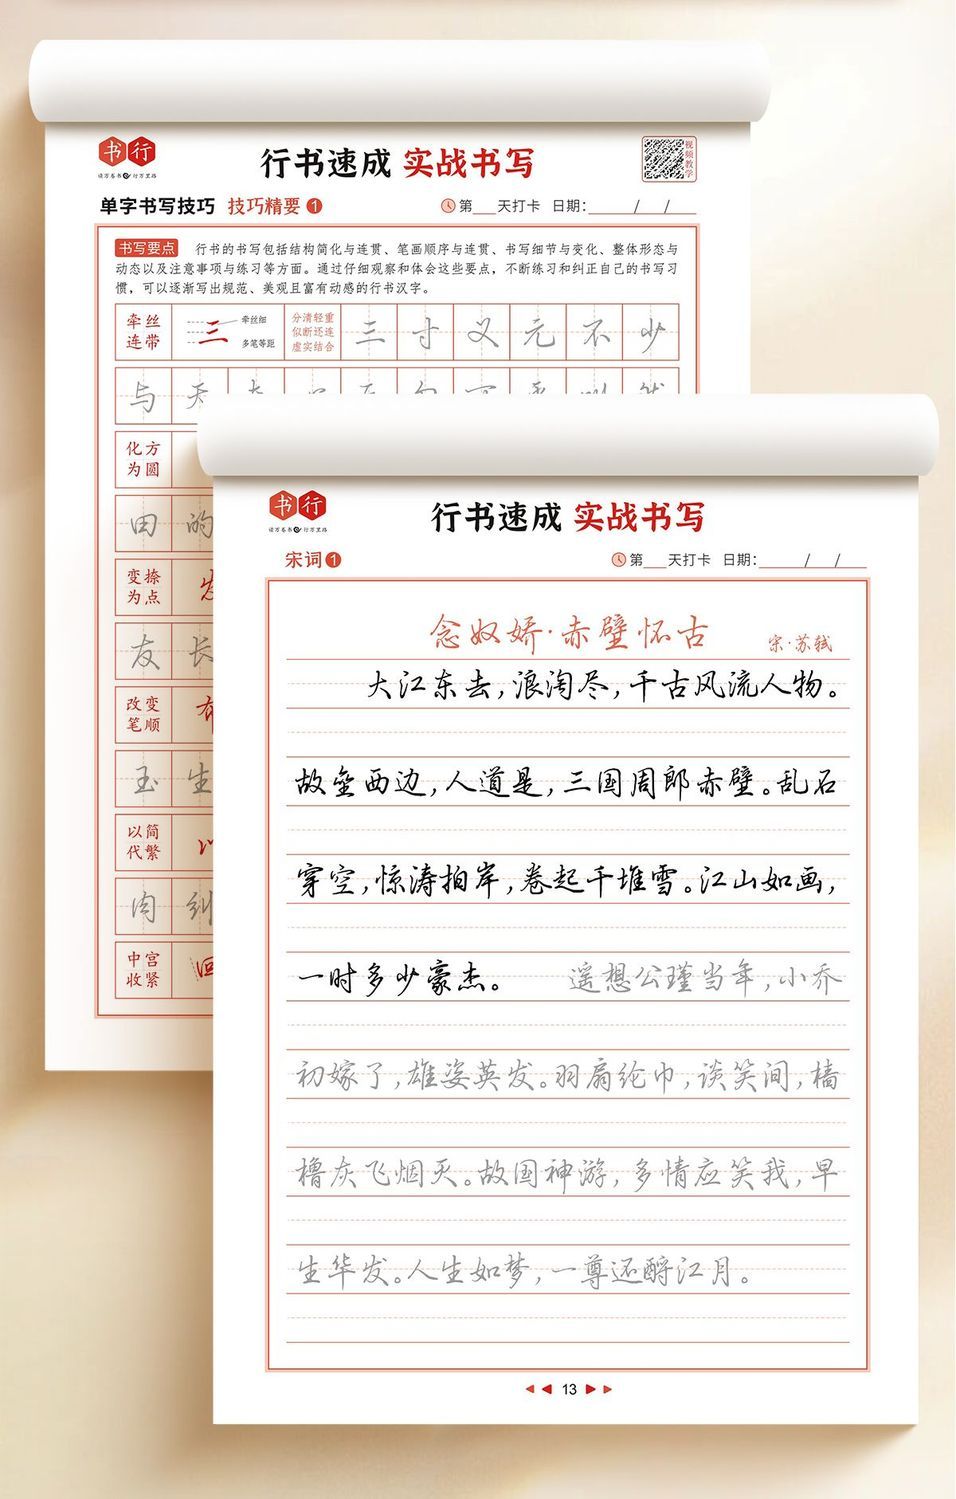 书行
读万卷书 行万里路
行书速成 实战书写
视频教学
单字书写技巧 技巧精要 1
第___天打卡 日期:______/___/___
书写要点 行书的书写包括结构简化与连贯、笔画顺序与连贯、书写细节与变化、整体形态与
动态以及注意事项与练习等方面。通过仔细观察和体会这些要点,不断练习和纠正自己的书写习
惯,可以逐渐写出规范、美观且富有动感的行书汉字。
牵丝连带 三 牵丝细 多笔等距 分清轻重 似断还连 虚实结合 三 寸 义 元 不 少
与 天
化方为圆
田 的
变捺为点 发
友 长
改变笔顺
玉 生
以简代繁
肉 到
中宫收紧 回
书行
读万卷书 行万里路
行书速成 实战书写
宋词 1
第___天打卡 日期:______/___/___
念奴娇·赤壁怀古 宋·苏轼
大江东去,浪淘尽,千古风流人物。
故垒西边,人道是,三国周郎赤壁。乱石
穿空,惊涛拍岸,卷起千堆雪。江山如画,
一时多少豪杰。 遥想公瑾当年,小乔
初嫁了,雄姿英发。羽扇纶巾,谈笑间,樯
橹灰飞烟灭。故国神游,多情应笑我,早
生华发。人生如梦,一尊还酹江月。
13